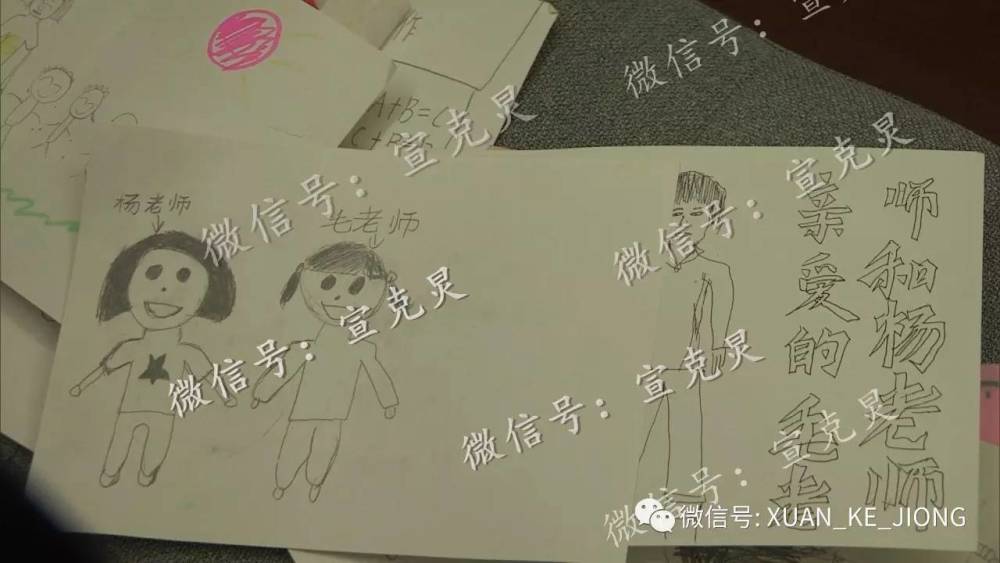 微信号：宣
作
A+B=C
微信号：宣克炅
微信号：宣克炅
杨老师
毛老师
亲愛的毛老
师和杨老师
微信号：宣克炅
微信号：宣克炅
微信号：宣克炅
微信号: XUAN_KE_JIONG